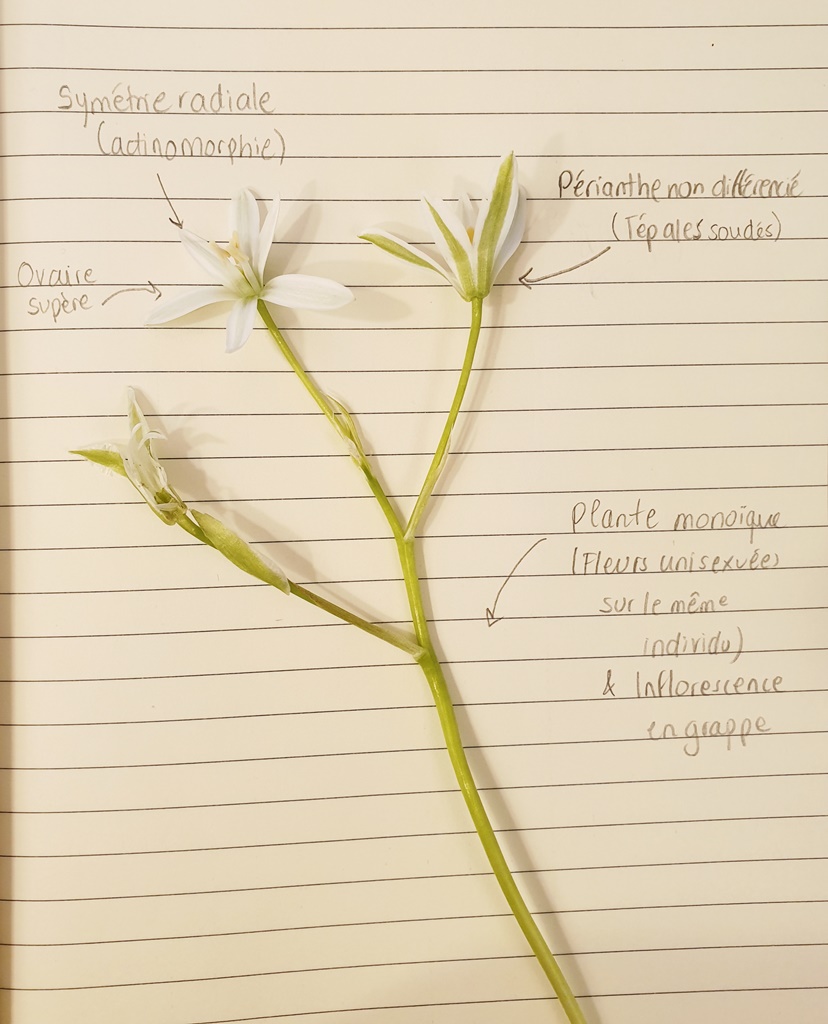 Symétrie radiale
(actinomorphie)
Périanthe non différencié
(Tépales soudés)
Ovaire
supère
Plante monoïque
(Fleurs unisexuée)
sur le même
individu)
& Inflorescence
en grappe